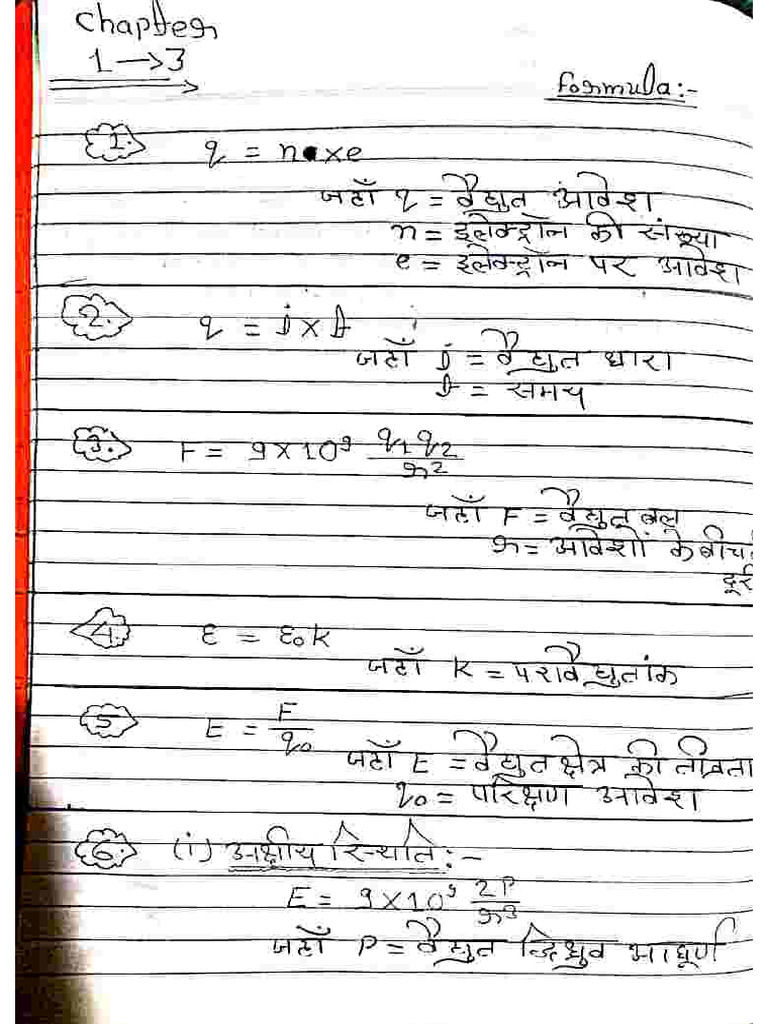 Chapter
1→3
formula:-
1. q = n×e
जहाँ q = वैद्युत आवेश
n = इलेक्ट्रॉन की संख्या
e = इलेक्ट्रॉन पर आवेश
2. q = i×t
जहाँ i = वैद्युत धारा
t = समय
3. F = 9×10⁹ q₁q₂/r²
जहाँ F = वैद्युत बल
r = आवेशों के बीच
दूरी
4. ε = ε₀k
जहाँ K = परावैद्युतांक
5. E = F/q₀
जहाँ E = वैद्युत क्षेत्र की तीव्रता
q₀ = परिक्षण आवेश
6. (i) अक्षीय स्थिति:-
E = 9×10⁹ 2P/r³
जहाँ P = वैद्युत द्विध्रुव आघूर्ण